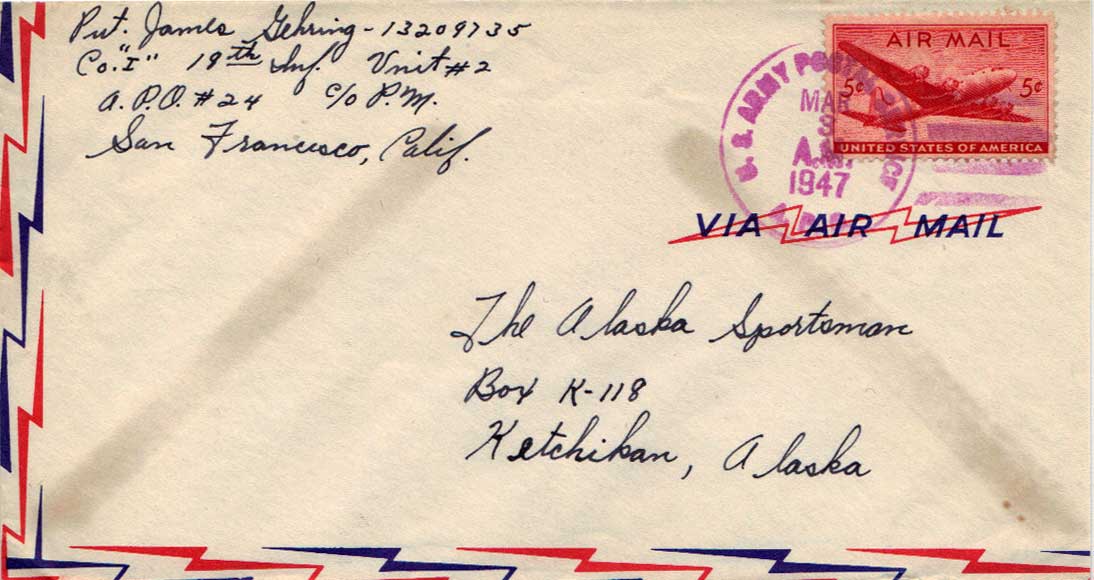 Pvt. James Gehring - 13209735
Co. "I" 19th Inf. Unit #2
A.P.O. #24 c/o P.M.
San Francisco, Calif.
AIR MAIL
5¢ 5¢
UNITED STATES OF AMERICA
U.S. ARMY POSTAL SERVICE
MAR
3
A.M.
1947
VIA AIR MAIL
The Alaska Sportsman
Box K-118
Ketchikan, Alaska